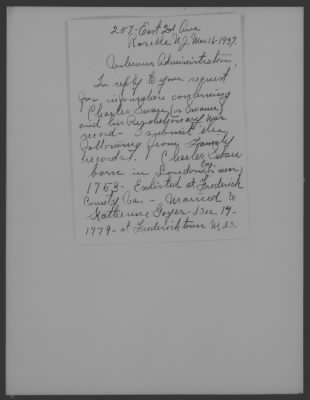 207- East 2nd Ave
Roselle N.J. Mar 16-1937.
Veterans Administration,
In reply to your request
for information concerning
Charles Swan (or Swann)
and his Revolutionary War
record- I submit the
following from Family
records. Charles Swan
born in London Eng. (or near)
1753- Enlisted at Frederick
County Va. - Married to
Katherine Goyer- Dec. 19-
1779- at Fredericktown Md.